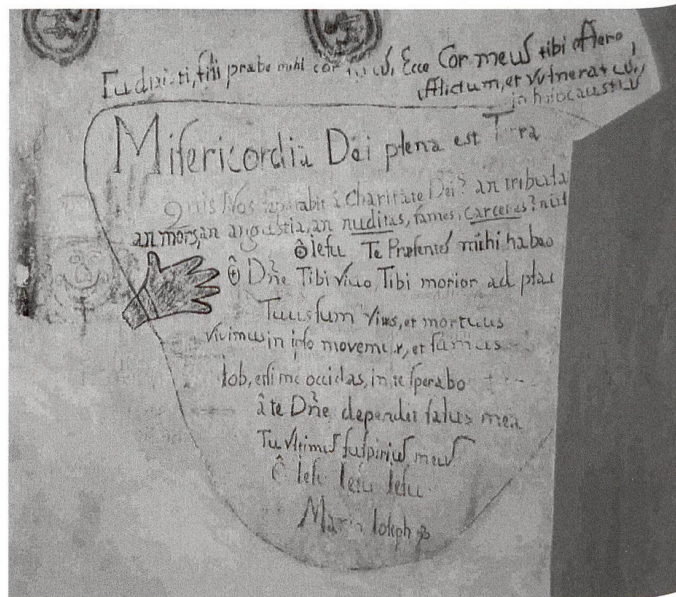 Tu dixisti, fili prabe mihi cor tuum, Ecce Cor meum tibi offero,
afflictum, et vulneratum,
in holocaustum
Misericordia Dei plena est Terra
Quis Nos separabit à Charitate Dei? an tribula
an mors, an angustia, an nuditas, fames, carceres?
ô Iesu Te Prusentem mihi habeo
ô Dñe Tibi vivo Tibi morior ad
Tuus sum vivus, et mortuus
vivimus in ipso movemur, et sumus
Iob, etsi me occidas, in te sperabo
à te Dñe dependit salus mea
Tu vltimum suspirium meum
ô Iesu Iesu Iesu
Maria Ioseph